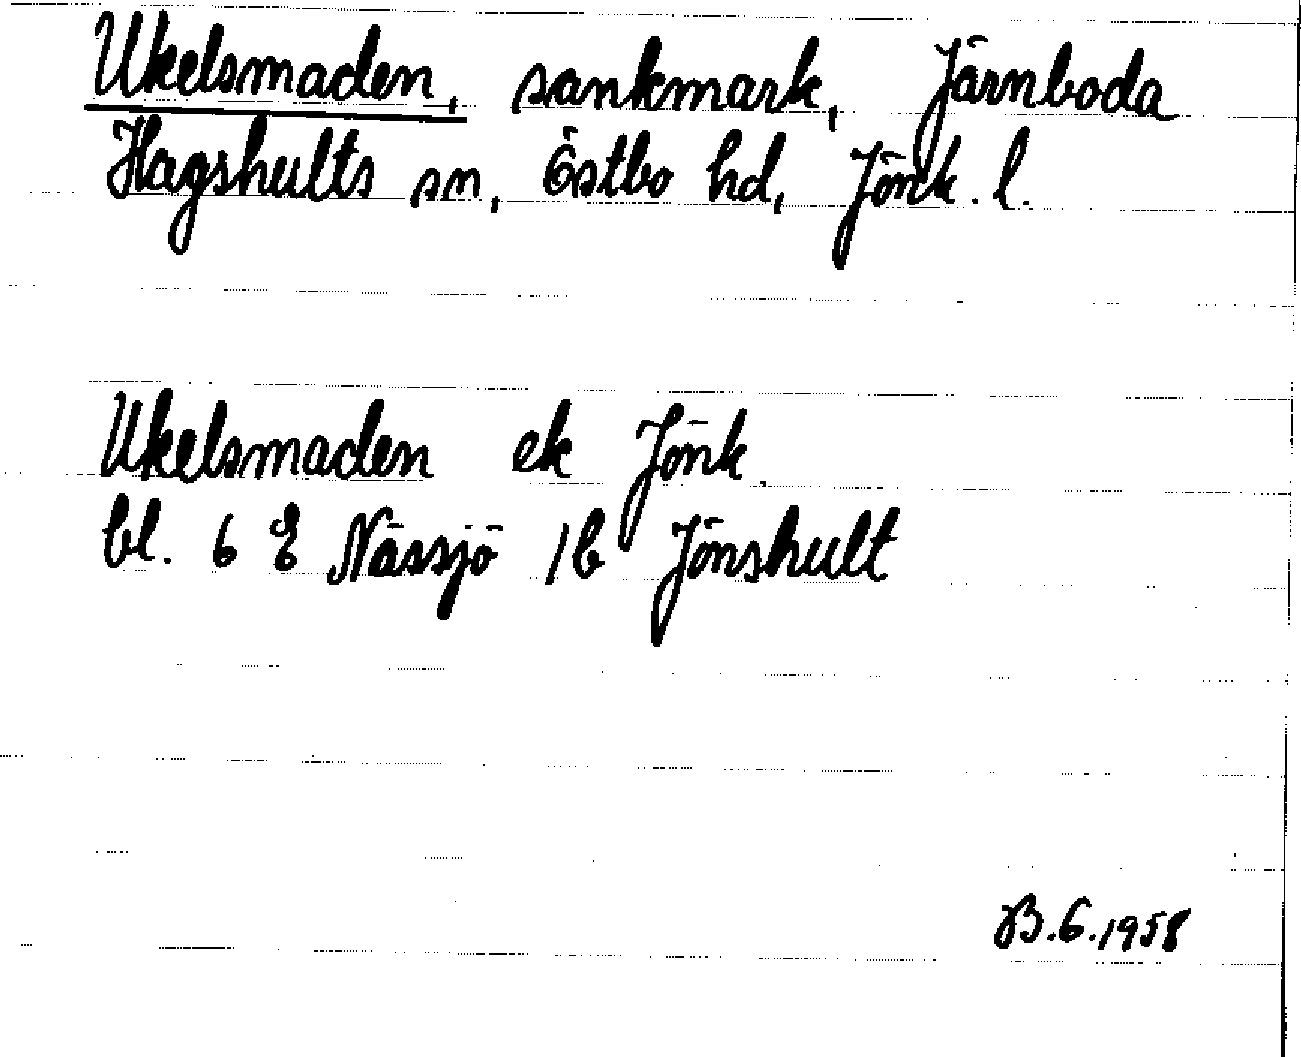 Ukelsmaden, sankmark, Järnboda
Hagshults sn, Östbo hd, Jönk. l.
Ukelsmaden ek Jönk.
bl. 6 E Nässjö 1b Jönshult
B.G. 1958